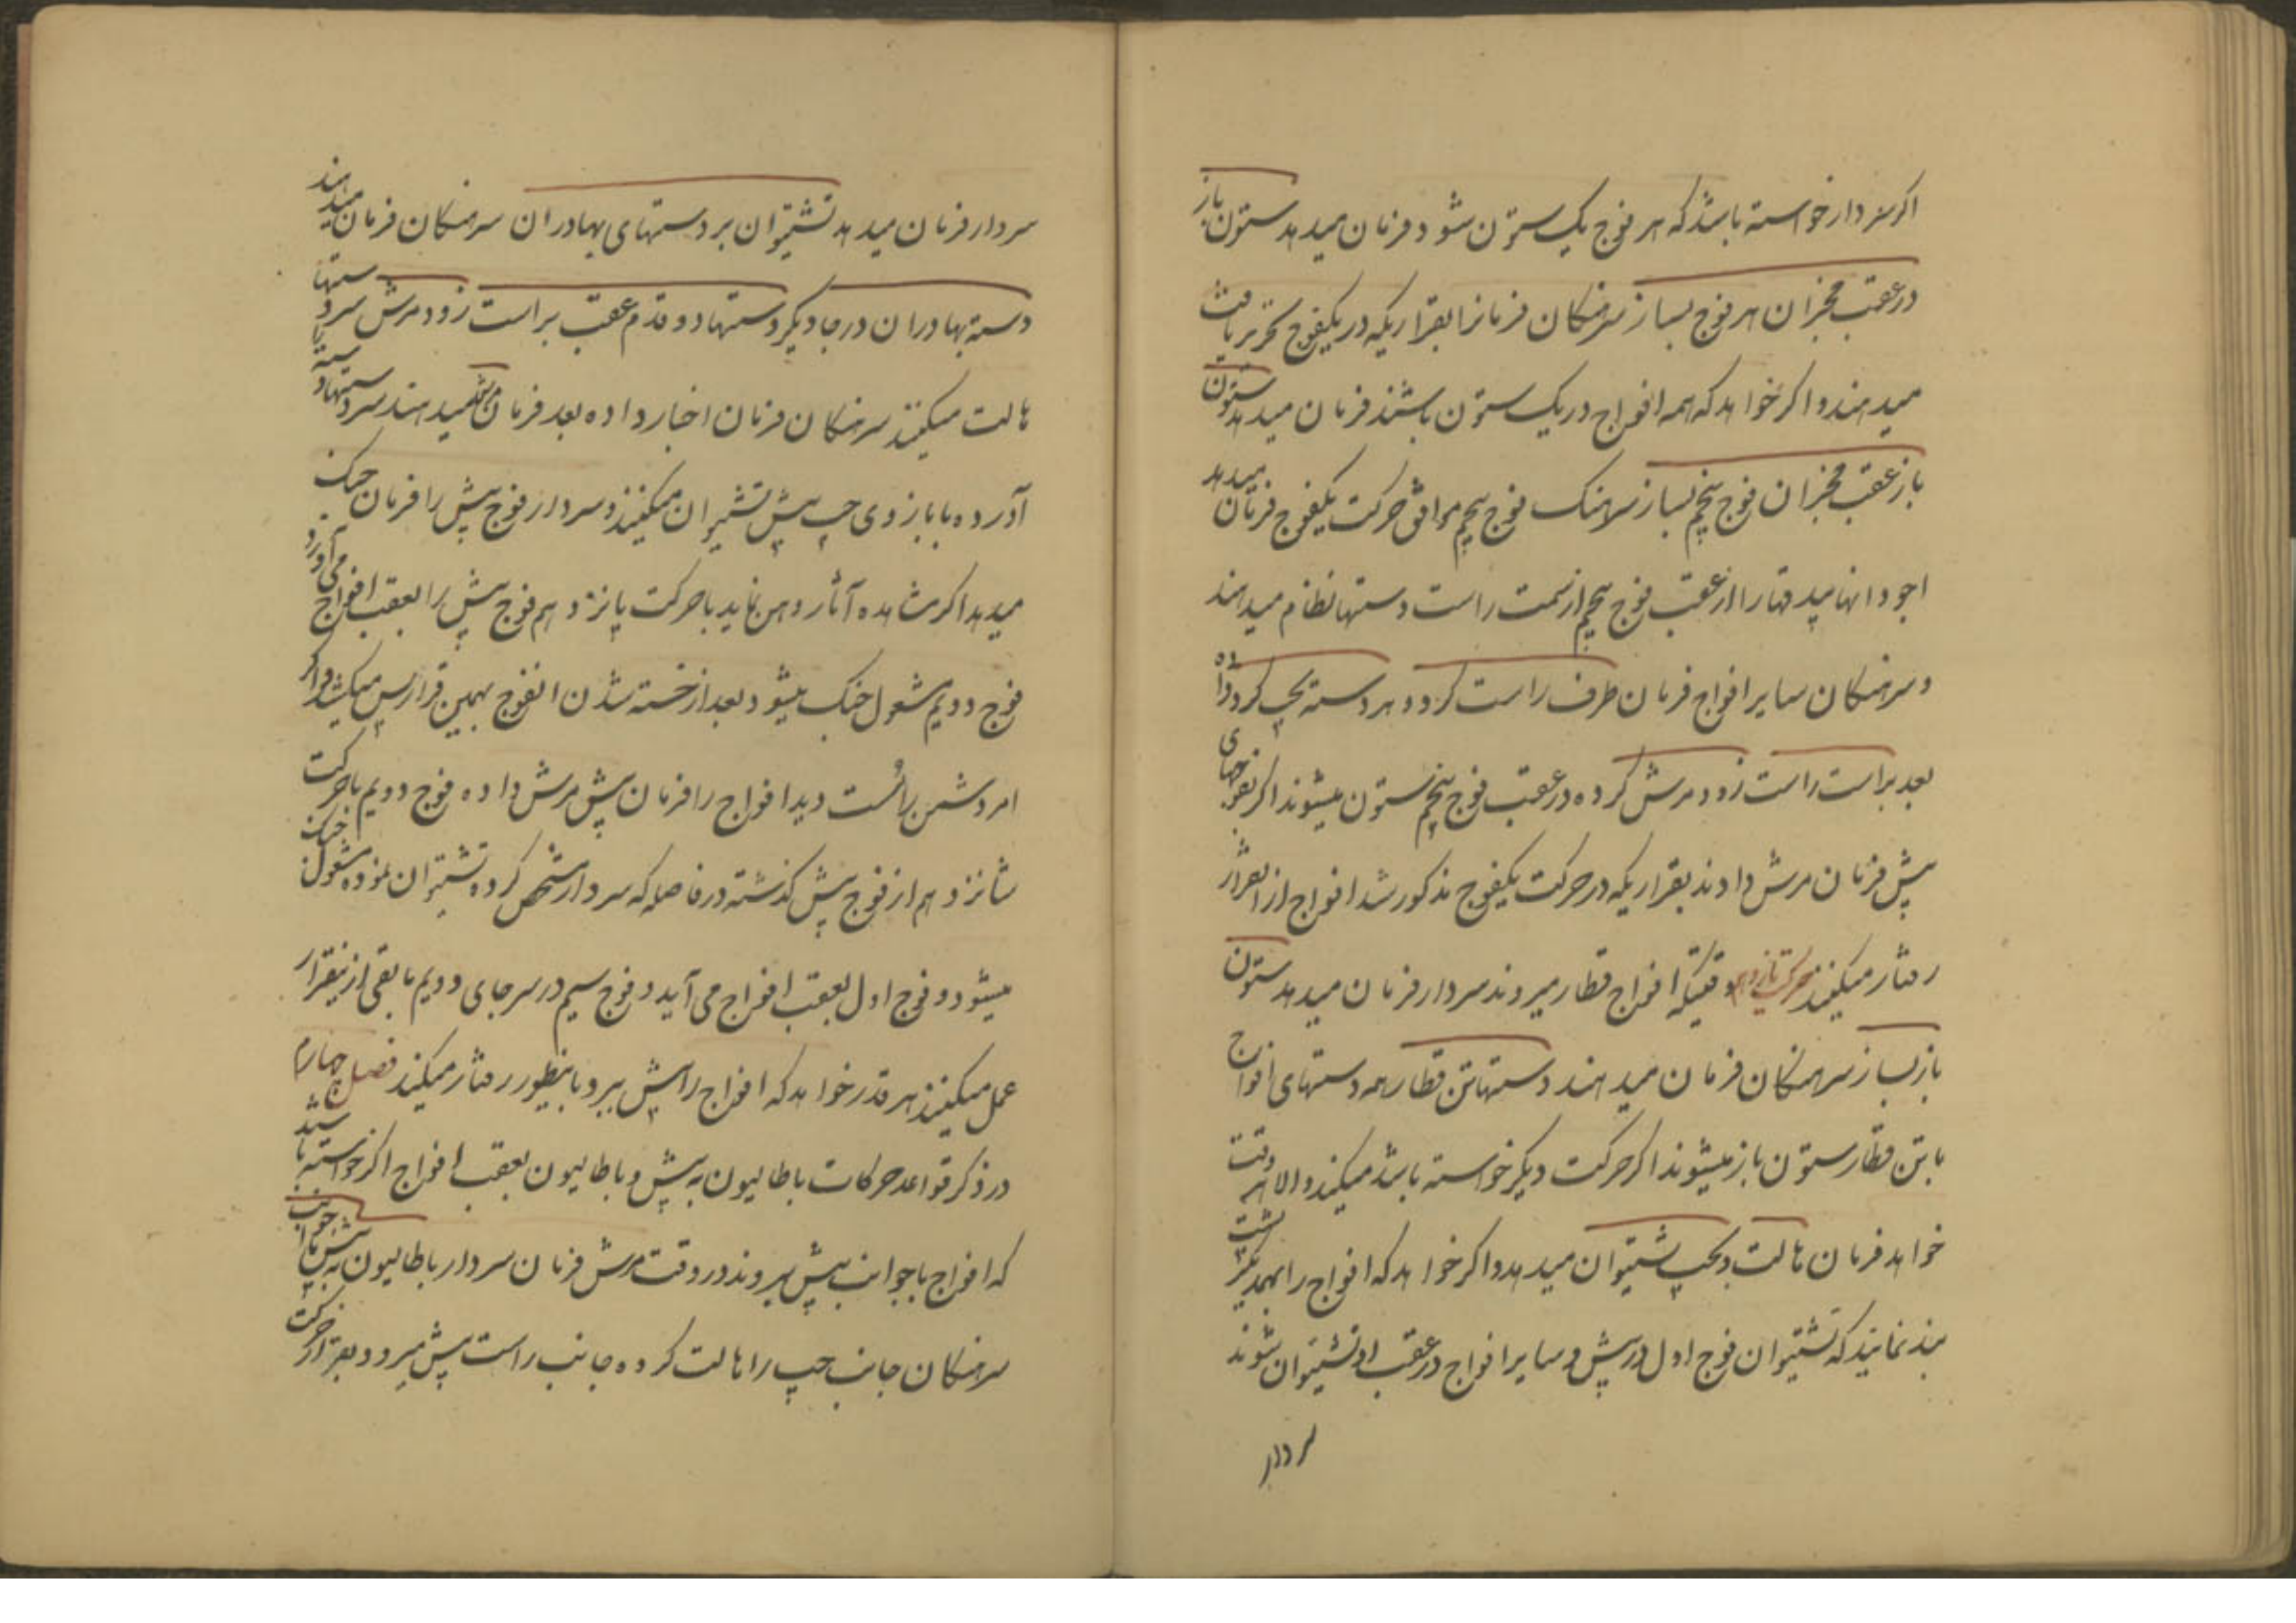 اکر سردار خواسته باشد که هر فوج یک ستون شود فرمان میدهد ستون باز
در عقب مخبران هر فوج بساز سرهنکان فرمانرا بقراریکه در یکفوج تحریر یافت
میدهند و اکر خواهد که همه افواج در یک ستون باشند فرمان میدهد ستون
باز عقب مخبران فوج پنجم بساز سرهنک فوج پنجم موافق حرکت یکفوج فرمان میدهد
از عقب فوج پنجم از سمت راست دستها نظام میدهند
و سرهنکان سایر افواج فرمان طرف راست کرد و هر دسته بچپ کرد داده
بعد براست راست زود مرش کرده در عقب فوج پنجم ستون میشوند اکر
پیش فرمان مرش دادند بقراریکه در حرکت یکفوج مذکور شد افواج از انقرار
رفتار میکنند وقتیکه افواج قطار میروند سردار فرمان میدهد ستون
باز بساز سرهنکان فرمان میدهند دستها تن قطار همه دستهای افواج
با تن قطار ستون باز میشوند اکر حرکت دیکر خواسته باشد میکند والا هر وقت
خواهد فرمان هالت و بچپ تشتیوان میدهد و اکر خواهد که افواج را پشت بهمدیکر
بند نمایند که تشتیوان فوج اول در پیش و سایر افواج در عقب او تشتیوان شوند
سردار
سردار فرمان میدهد تشتیوان بر دستهای بهادران سرهنکان فرمان میدهند
دسته بهادران در جا دیکر دستها دو قدم عقب براست زود مرش سر دستها تا
هالت میکنند سرهنکان فرمان اخبار داده بعد فرمان مرش میدهند سر دستها دسته
آورده با بازوی چپ پیش تشتیوان میکنند و سردار فوج پیش را فرمان جنک
میدهد اکر مشاهده آثار وهن نماید با حرکت پانزدهم فوج پیش را بعقب افواج می آورد
فوج دویم مشغول جنک میشود بعد از خسته شدن انفوج بهمین قرار پس میکشد و اکر
امر دشمن را سست دید افواج را فرمان پیش مرش داده فوج دویم با حرکت
شانزدهم از فوج پیش کذشته در فاصله که سردار مشخص کرده تشتیوان نموده مشغول جنک
میشود و فوج اول بعقب افواج می آید و فوج سیم در سر جای دویم مابقی ازینقرار
عمل میکنند هر قدر خواهد که افواج را پیش ببرد باینطور رفتار میکند فصل چهارم
در ذکر قواعد حرکات باطالیون به پیش و باطالیون بعقب افواج اکر خواسته باشد
که افواج با جوانب پیش بروند در وقت مرش فرمان سردار باطالیون به پیش با جوانب
سرهنکان جانب چپ را هالت کرده جانب راست پیش میرود بقرار حرکت